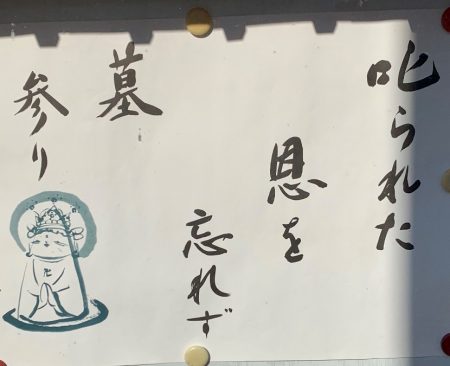 叱られた
恩を
忘れず
墓
参り